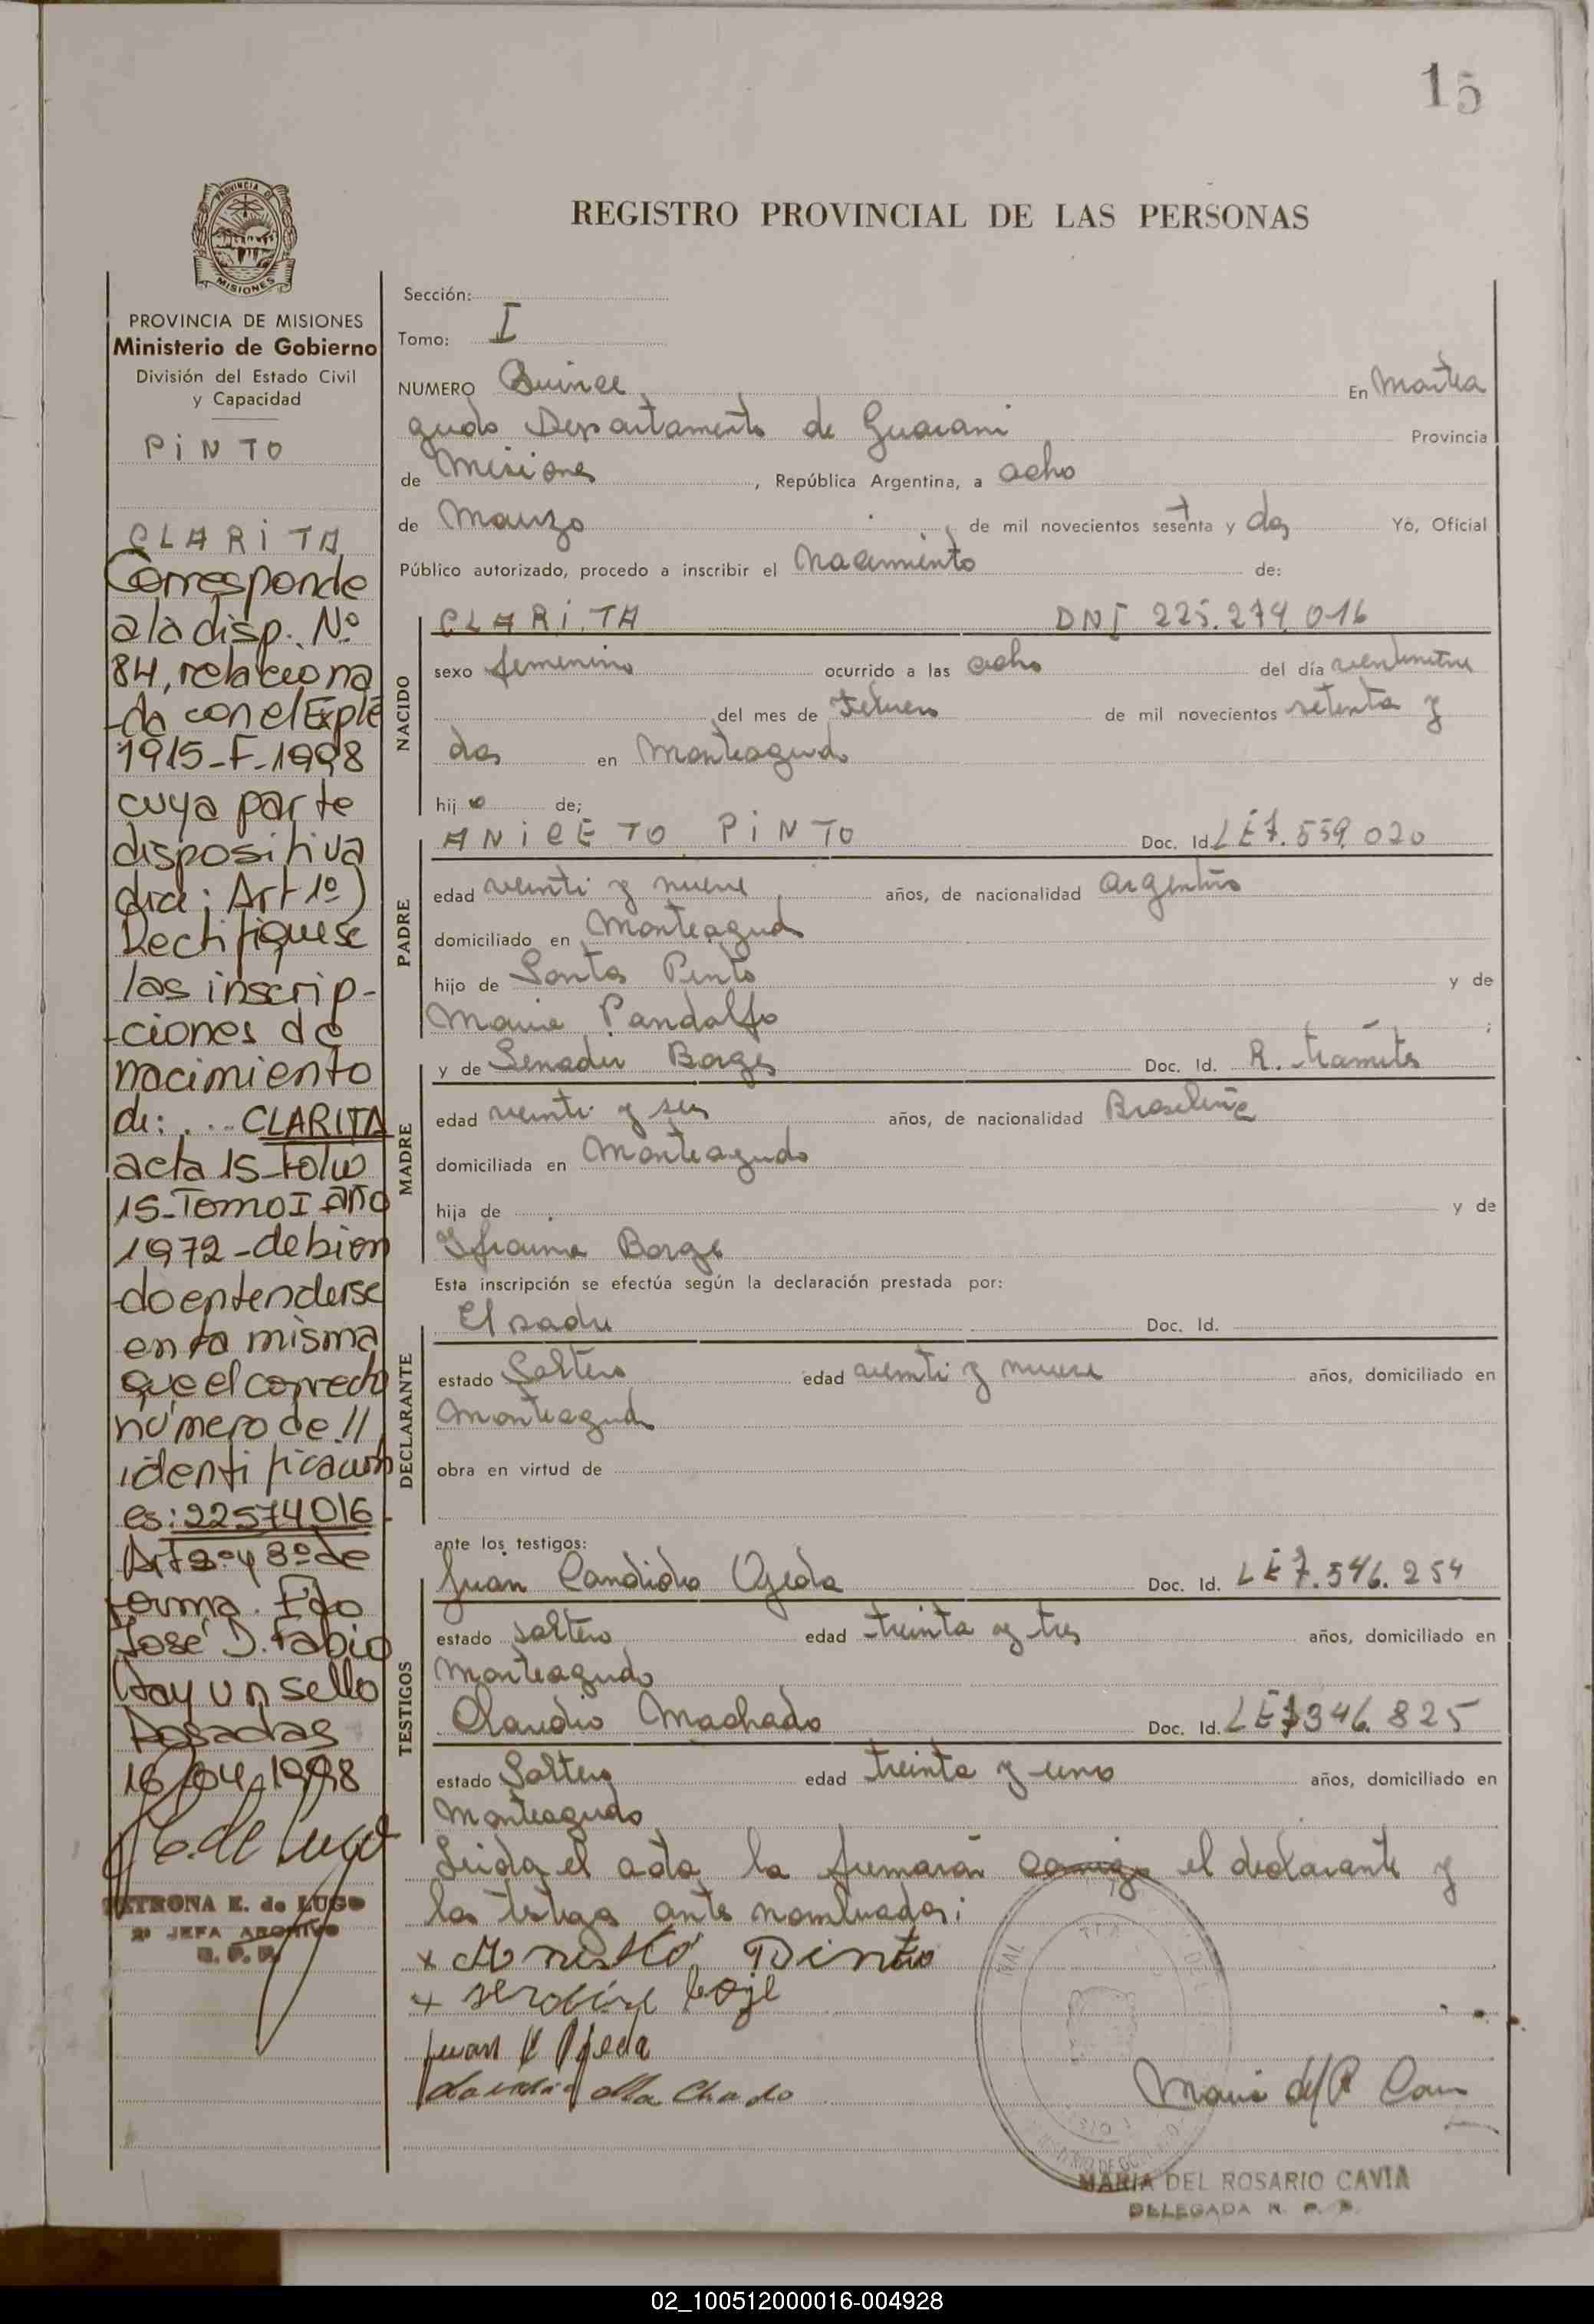 15
REGISTRO PROVINCIAL DE LAS PERSONAS
PROVINCIA DE
MISIONES
PROVINCIA DE MISIONES
Ministerio de Gobierno
División del Estado Civil
y Capacidad
PINTO
CLARITA
Corresponde
a la disp. Nº
84, relaciona
-da con el Expte
1915-F-1998
cuya parte
dispositiva
dice: Art 1º)
Rectifiquese
las inscrip-
-ciones de
nacimiento
de: ... CLARITA
acta 15-Folio
15-Tomo I año
1972-debien
-do entenderse
en la misma
que el correcto
número de //
identificación
es: 22574016
Art 2º y 3º de
forma. Fdo
José D. Fabio
Hay un sello
Posadas
16/04/1998
E. de Lugo
PETRONA E. de LUGO
2º JEFA ARCHIVO
R. P. P.
Sección:
Tomo: I
NUMERO Quince En Montea
gudo Departamento de Guarani Provincia
de Misiones, República Argentina, a ocho
de Marzo de mil novecientos sesenta y dos Yó, Oficial
Público autorizado, procedo a inscribir el Nacimiento de:
NACIDO
CLARITA DNI 225.274.016
sexo femenino ocurrido a las ocho del día veintinueve
del mes de Febrero de mil novecientos setenta y
dos en Monteagudo
hij a de;
PADRE
ANICETO PINTO Doc. Id. LE 7.559.020
edad veinti y nueve años, de nacionalidad argentino
domiciliado en Monteagudo
hijo de Santos Pinto y de
Maria Pandolfo ;
MADRE
y de Borges Doc. Id. R. tramites
edad veinti y seis años, de nacionalidad Brasileña
domiciliada en Monteagudo
hija de y de
Borge
Esta inscripción se efectúa según la declaración prestada por:
DECLARANTE
El padre Doc. Id.
estado Soltero edad veinti y nueve años, domiciliado en
Monteagudo
obra en virtud de
ante los testigos:
TESTIGOS
Juan Candido Ojeda Doc. Id. LE 7.546.254
estado soltero edad treinta y tres años, domiciliado en
Monteagudo
Claudio Machado Doc. Id. LE 7346.825
estado Soltero edad treinta y uno años, domiciliado en
Monteagudo
Leida el acta la firmaran conmigo el declarante y
los testigos antes nombrados:
x Pinto
x borje
Juan C Ojeda
Machado
Maria del R Cavia
MARIA DEL ROSARIO CAVIA
DELEGADA R. P. P.
02_100512000016-004928